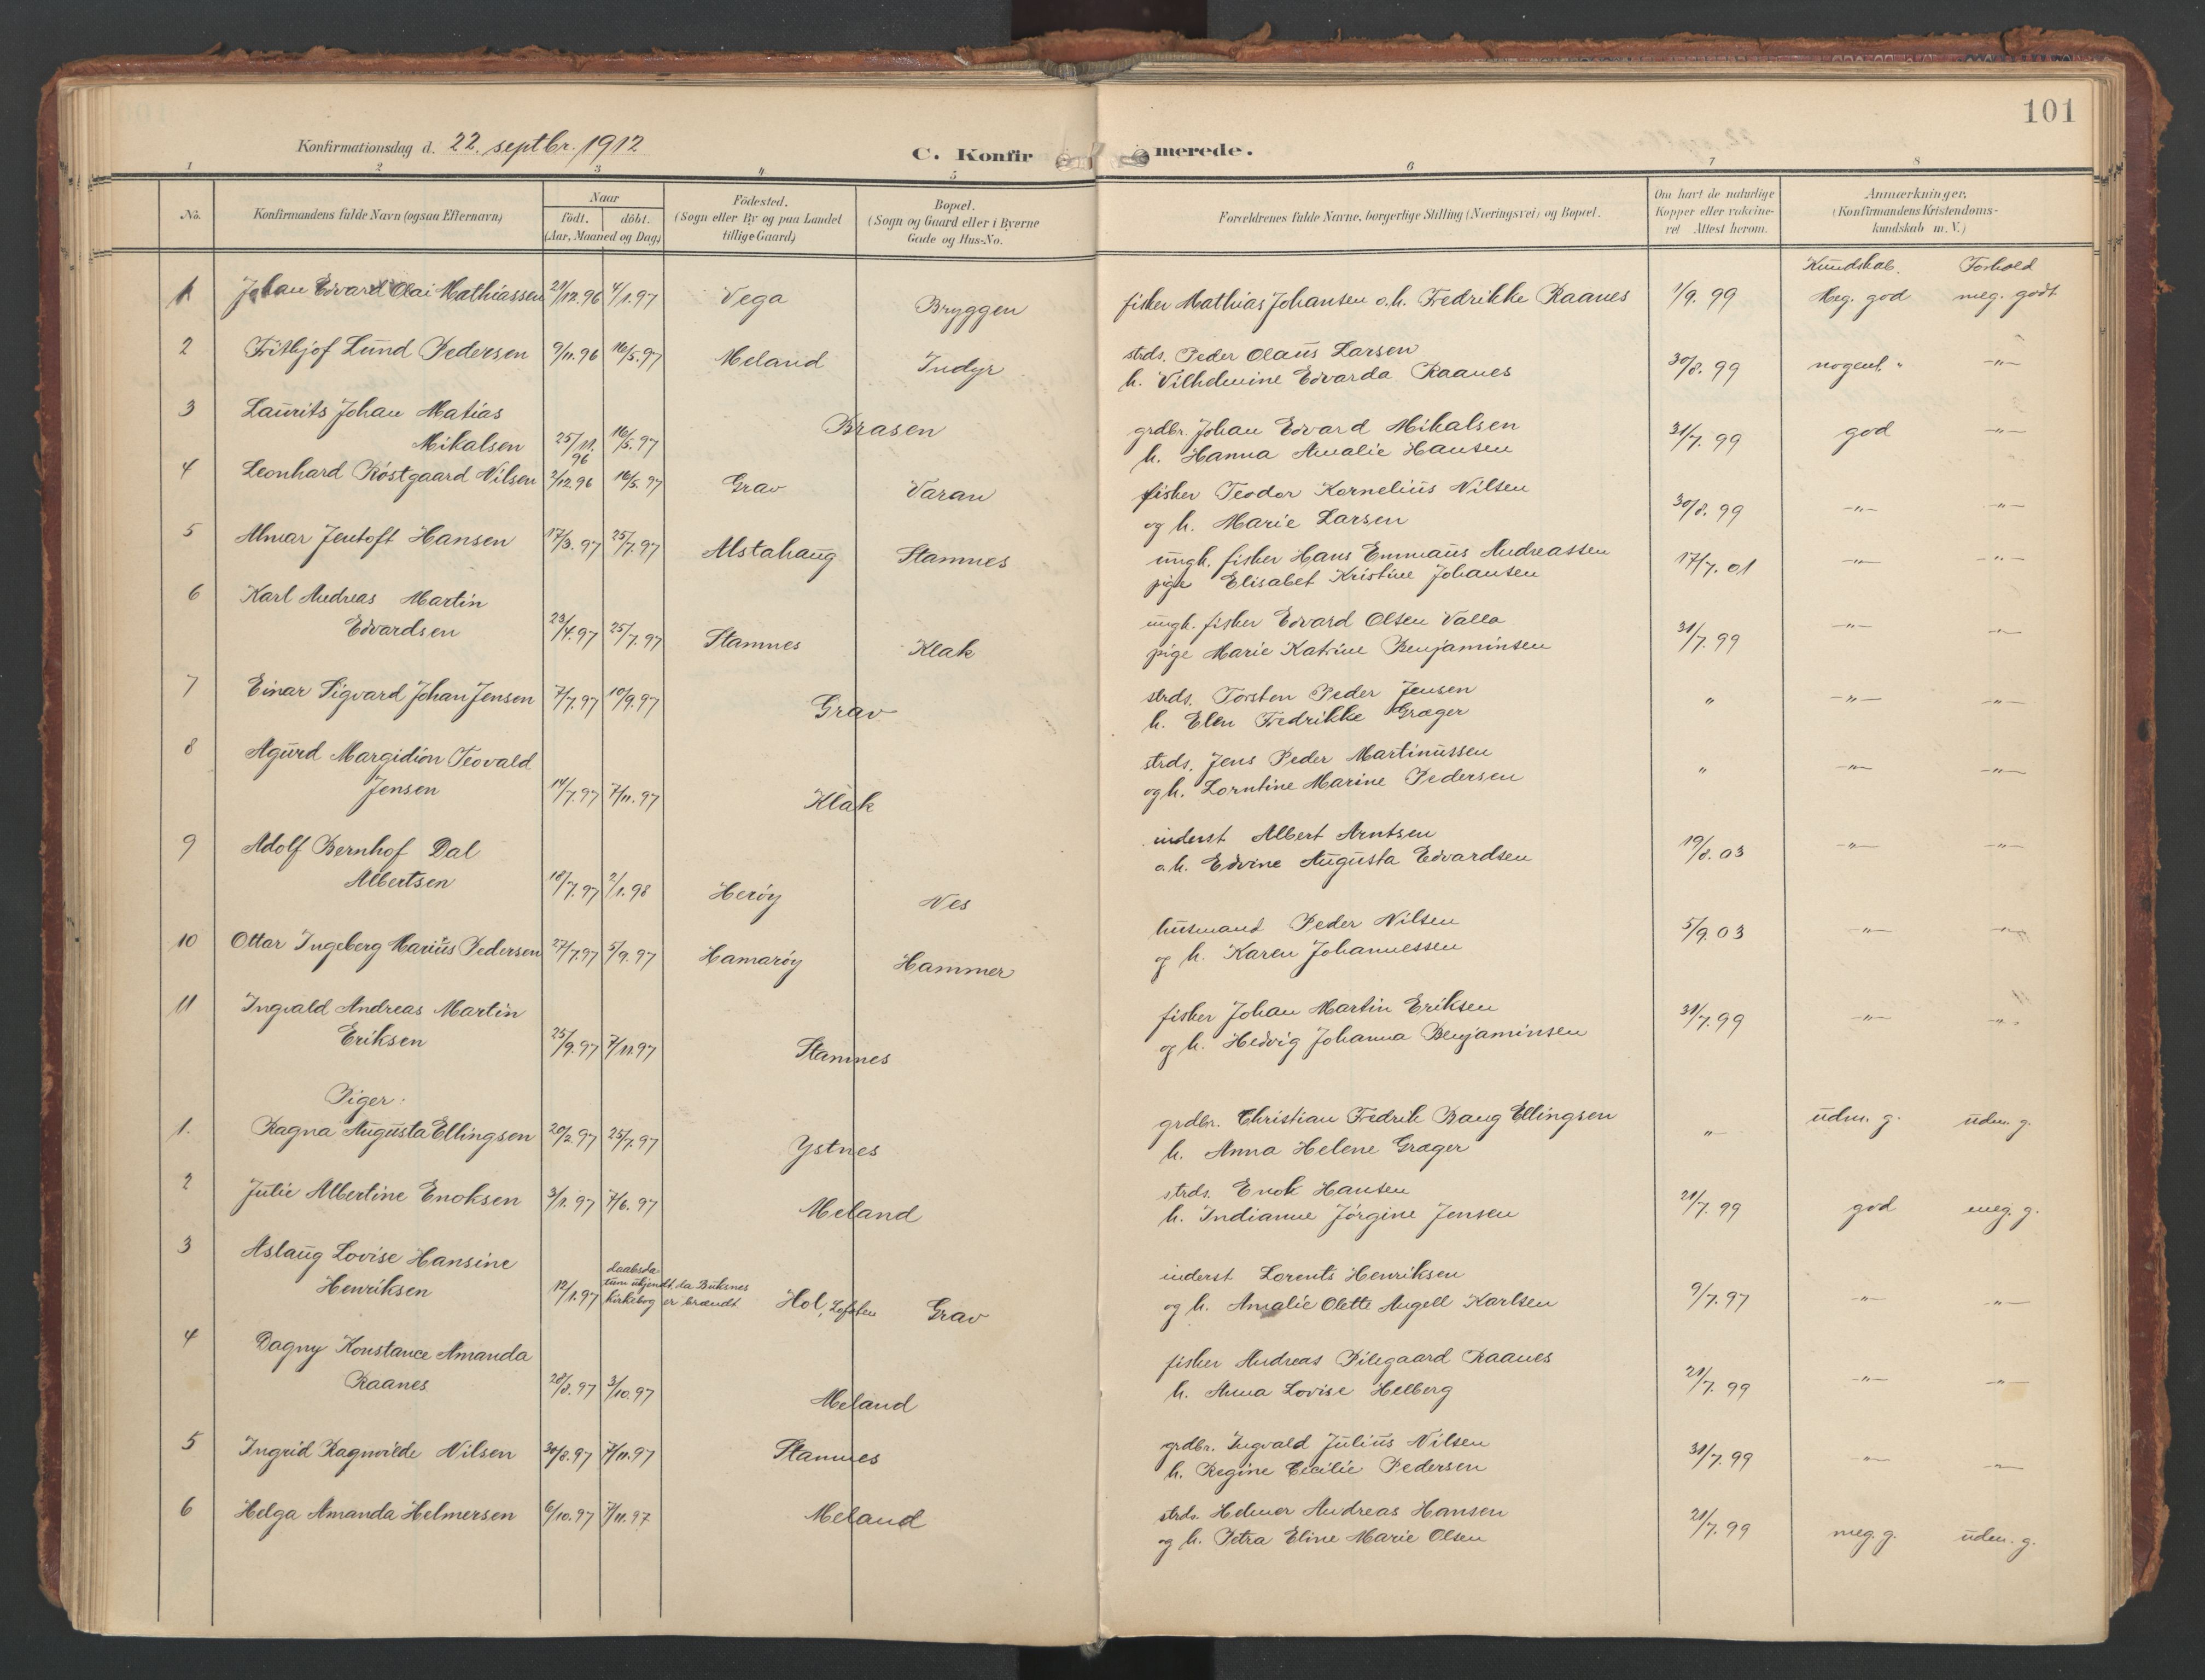 101
Konfirmationsdag d. 22. septbr. 1912
C. Konfirmerede.
1 2 3 4 5 6 7 8
No.
Konfirmandens fulde Navn (ogsaa Efternavn)
Naar
födt. döbt.
(Aar, Maaned og Dag)
Födested.
(Sogn eller By og paa Landet
tillige Gaard)
Bopæl.
(Sogn og Gaard eller i Byerne
Gade og Hus-No.
Forældrenes fulde Navne, borgerlige Stilling (Næringsvei) og Bopæl.
Om havt de naturlige
Kopper eller vakcine-
ret Attest herom.
Anmærkninger,
(Konfirmandens Kristendoms-
kundskab m. V.)
Kundskab. Forhold
1 Johan Edvard Olai Mathiassen 29/12.96 4/1.97 Vega Bryggen fisker Mathias Johansen o.h. Fredrikke Raanes 1/9. 99 Meg. god meg. godt
2 Frithjof Lund Pedersen 9/11.96 16/5.97 Meland Indyr strds. Peder Olaus Larsen
h. Vilhelmine Edvarda Raanes 30/8. 99 nogenl. " -"-
3 Laurits Johan Matias
Mikalsen 25/11. 96 16/5.97 Brasen grdbr. Johan Edvard Mikalsen
h. Hanna Amalie Hansen 31/7. 99 god -"-
4 Leonhard Röstgaard Nilsen 3/12.96 16/5.97 Grav Varan fisker Teodor Kornelius Nilsen
og h. Marie Larsen 30/8. 99 -"- -"-
5 Almar Jentoft Hansen 17/3.97 25/7.97 Alstahaug Stamnes ungk. fisker Hans Emmaus Andreassen
pige Elisabet Kristine Johansen 17/7. 01 -"- -"-
6 Karl Andreas Martin
Edvardsen 23/4.97 25/7.97 Stamnes Klak ungk. fisker Edvard Olsen Valla
pige Marie Katrine Benjaminsen 31/7. 99 -"- -"-
7 Einar Sigvard Johan Jensen 7/7.97 10/9.97 Grav strds. Torsten Peder Jensen
h. Elen Fredrikke Græger " -"- -"-
8 Agurd Margidion Teovald
Jensen 14/7.97 7/11.97 Klak strds. Jens Peder Martinussen
og h. Lorntine Marine Pedersen " -"- -"-
9 Adolf Bernhof Dal
Albertsen 18/7.97 2/1.98 Heröy Nes inderst Albert Arntsen
o.h. Edvine Augusta Edvardsen 19/8. 03 -"- -"-
10 Ottar Ingeberg Marius Pedersen 27/7.97 5/9.97 Hamaröy Hammer husmand Peder Nilsen
og h. Karen Johannessen 5/9. 03 -"- -"-
11 Ingvald Andreas Martin
Eriksen 25/9.97 7/11.97 Stamnes fisker Johan Martin Eriksen
og h. Hedvig Johanna Benjaminsen 31/7.99 -"- -"-
Piger.
1. Ragna Augusta Ellingsen 20/2.97 25/7.97 Ystnes grdbr. Christian Fredrik Bang Ellingsen
h. Anna Helene Græger " udm. g. udm. g.
2 Julie Albertine Enoksen 3/1.97 7/6.97 Meland strds. Enok Hansen
h. Indianne Jörgine Jensen 21/7. 99 god meg. g.
3 Aslaug Lovise Hansine
Henriksen 12/1.97 daabsda
tum ukjendt, da Buksnes
kirkebog er brændt Hol, Lofoten Grav inderst Lorents Henriksen
og h. Amalie Olette Angell Karlsen 9/7.97 -"- -"-
4 Dagny Konstance Amanda
Raanes 28/8.97 3/10.97 Meland fisker Andreas Pilegaard Raanes
h. Anna Lovise Helberg 21/7. 99 -"- -"-
5 Ingrid Ragnvilde Nilsen 30/8.97 7/11.97 Stamnes grdbr. Ingvald Julius Nilsen
h. Regine Cecilie Pedersen 31/7.99 -"- -"-
6 Helga Amanda Helmersen 6/10.97 7/11.97 Meland strds. Helmer Andreas Hansen
og h. Petra Eline Marie Olsen 21/7.99 meg. g. udm. g.